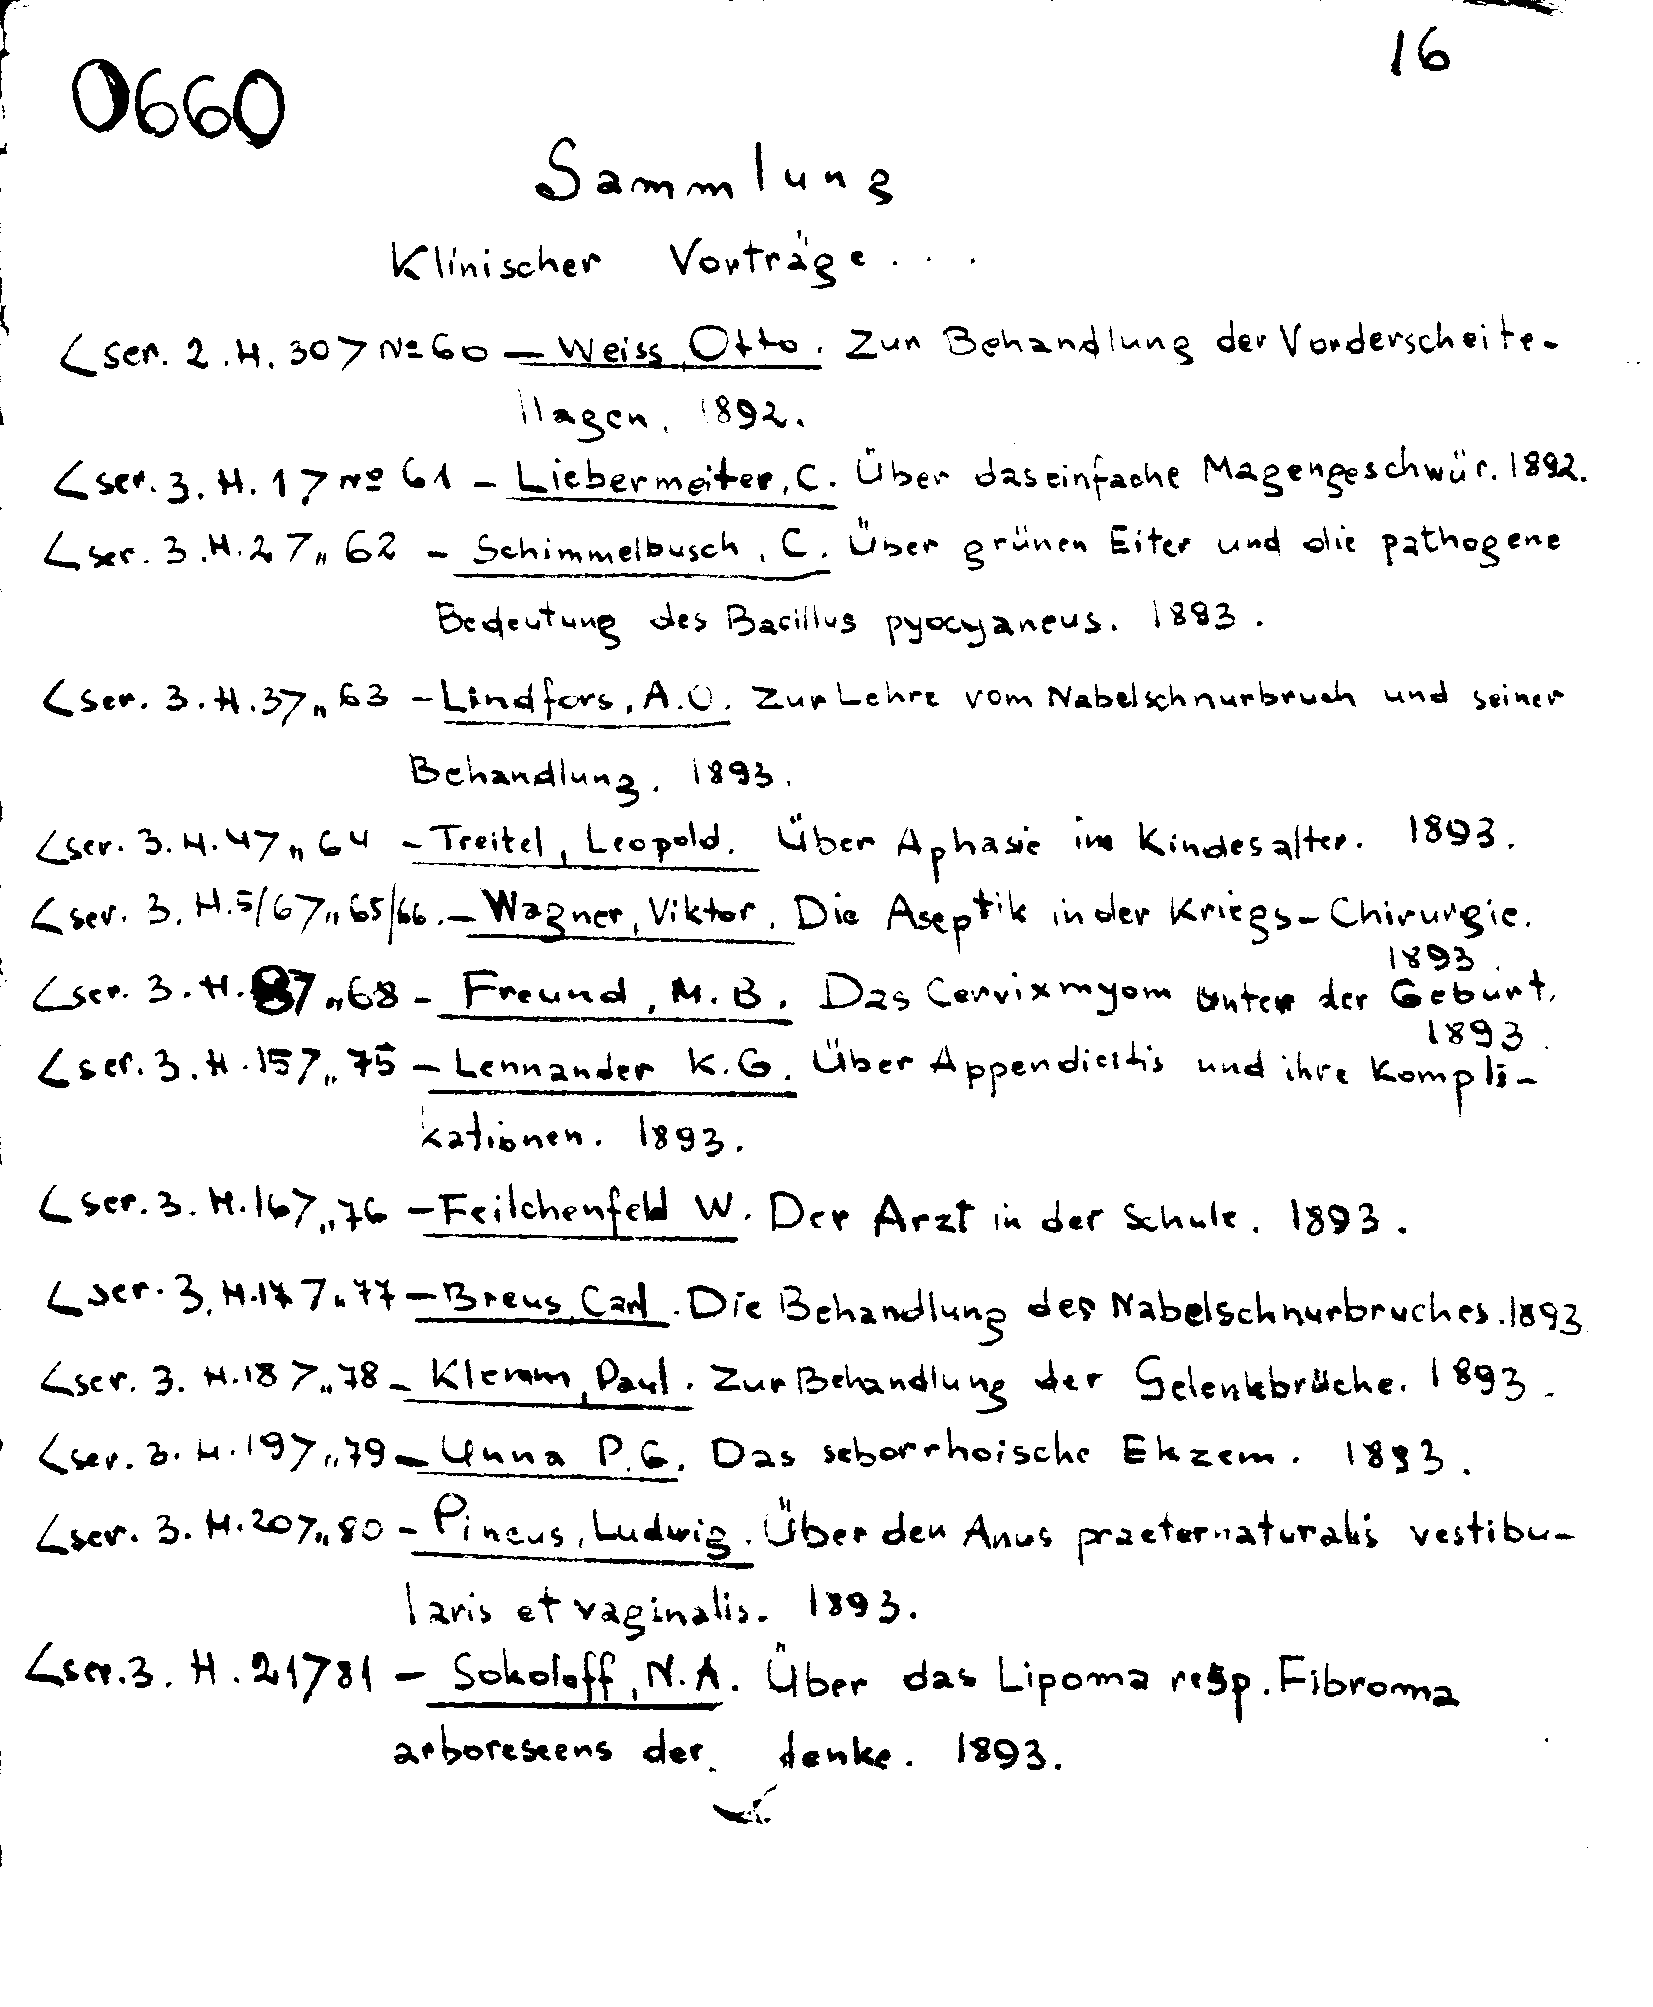 16
0660
Sammlung
Klinischer Vorträge...
<ser. 2. H. 30> No 60 — Weiss, Otto. Zur Behandlung der Vorderscheite-
llagen. 1892.
<ser. 3. H. 1> No 61 - Liebermeiter, C. Über das einfache Magengeschwür. 1892.
<ser. 3. H. 2> „ 62 - Schimmelbusch, C. Über grünen Eiter und die pathogene
Bedeutung des Bacillus pyocyaneus. 1893.
<ser. 3. H. 3> „ 63 - Lindfors, A.O. Zur Lehre vom Nabelschnurbruch und seiner
Behandlung. 1893.
<ser. 3. H. 4> „ 64 - Treitel, Leopold. Über Aphasie im Kindesalter. 1893.
<ser. 3. H. 5/6> „ 65/66. - Wagner, Viktor. Die Aseptik in der Kriegs-Chirurgie.
1893.
<ser. 3. H. 8> „ 68 - Freund, M. B. Das Cervixmyom unter der Geburt.
1893.
<ser. 3. H. 15> „ 75 - Lennander K. G. Über Appendicitis und ihre Kompli-
kationen. 1893.
<ser. 3. H. 16> „ 76 - Feilchenfeld W. Der Arzt in der Schule. 1893.
<ser. 3. H. 17> „ 77 - Breus, Carl. Die Behandlung des Nabelschnurbruches. 1893
<ser. 3. H. 18> „ 78 - Klemm, Paul. Zur Behandlung der Gelenkbrüche. 1893.
<ser. 3. H. 19> „ 79 - Unna P. G. Das seborrhoische Ekzem. 1893.
<ser. 3. H. 20> „ 80 - Pincus, Ludwig. Über den Anus praeternaturalis vestibu-
laris et vaginalis. 1893.
<ser. 3. H. 21> 81 - Sokoloff, N. A. Über das Lipoma resp. Fibroma
arborescens der denke. 1893.